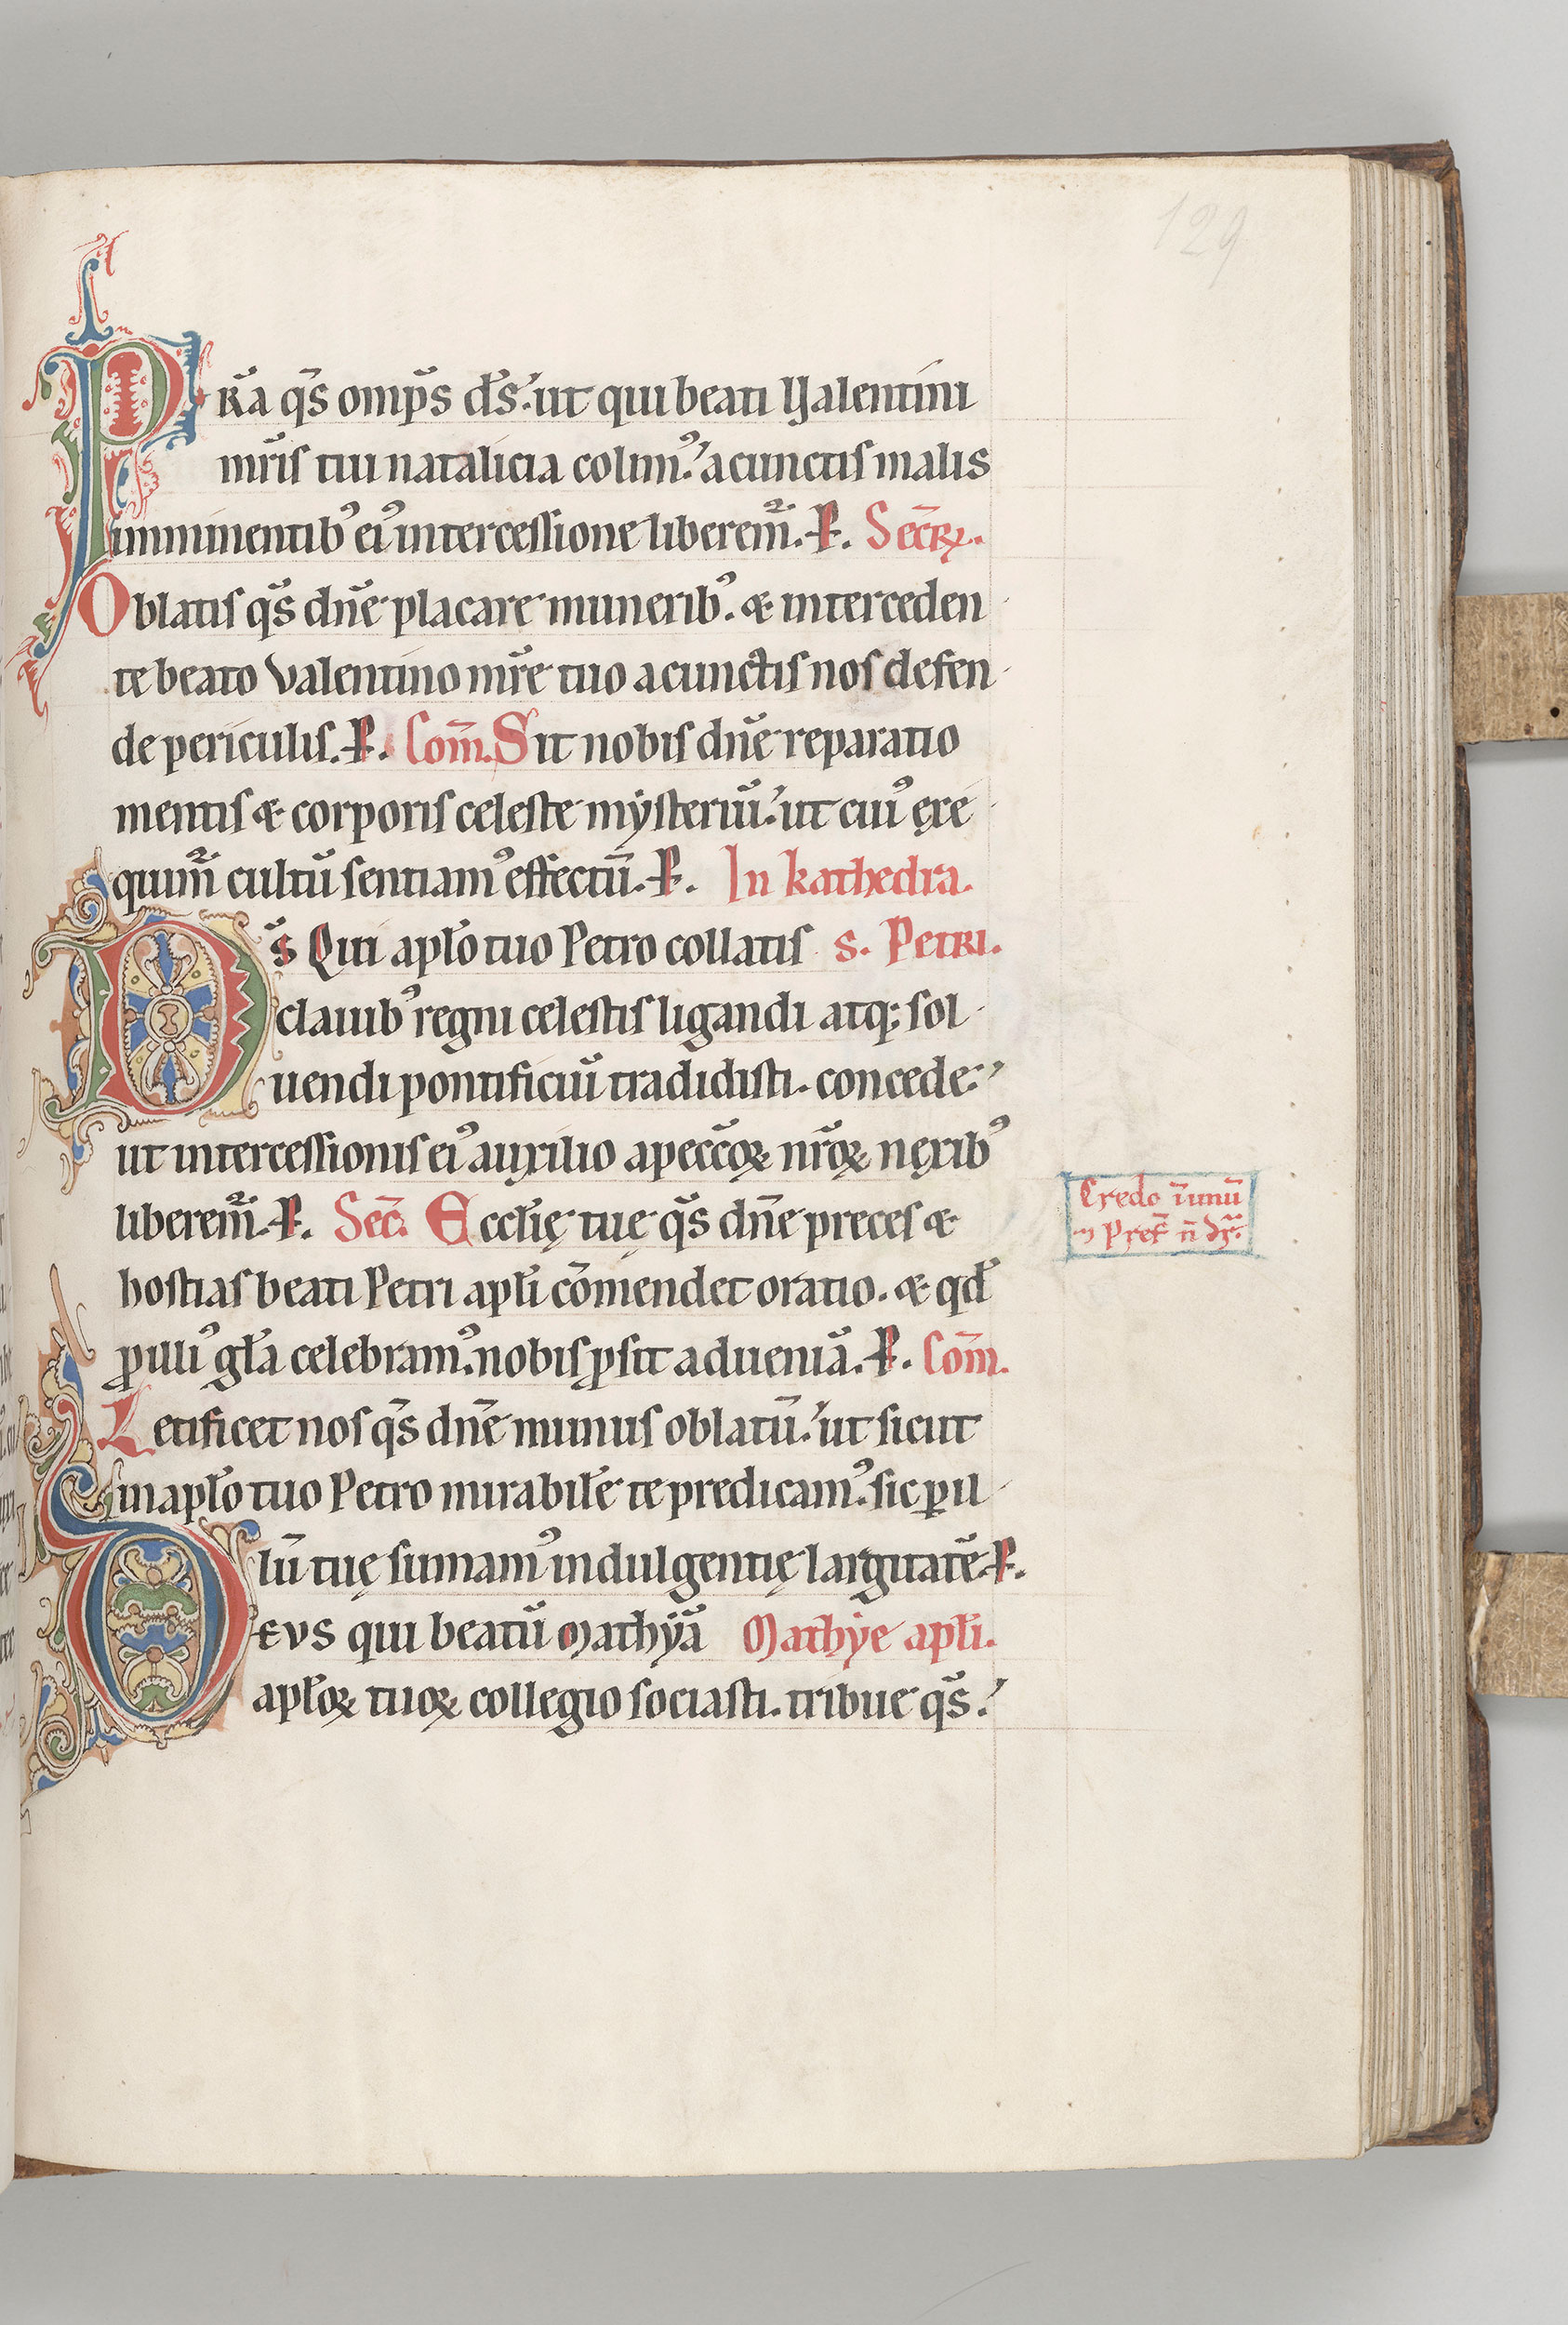 129
PR̄a q̄s omp̄s d̄s. ut qui beati Valentini
mr̄is tui natalicia colim᾿. a cunctis malis
imminentib᾿ ei᾿ intercessione liberem̄. P. Secr̄.
Oblatis q̄s dn̄e placare munerib᾿. & interceden
te beato Valentino mr̄e tuo a cunctis nos defen
de periculis. P. Com̄. Sit nobis dn̄e reparatio
mentis & corporis celeste mẏsteriū. ut cui᾿ exe
quim̄ cultū sentiam᾿ effectū. P. In kathedra.
Ds̄ Qui apl̄o tuo Petro collatis s. Petri.
clauib᾿ regni celestis ligandi atq; sol
uendi pontificiū tradidisti. concede.
ut intercessionis ei᾿ auxilio a pecc̄oꝝ nr̄oꝝ nęxib᾿
liberem̄. P. Sec̄. Eccl̄ię tuę q̄s dn̄e preces &
hostias beati Petri apl̄i cōmendet oratio. & qd̄
ꝓ illi᾿ gl̄a celebram᾿. nobis ꝓsit ad ueniā. P. Com̄.
Letificet nos q̄s dn̄e munus oblatū. ut sicut
in apl̄o tuo Petro mirabilē te predicam᾿. sic ꝑ il
lū tuę sumam᾿ indulgentię largitatē. P.
DEVS qui beatū Mathẏā Mathẏe apl̄i.
apl̄oꝝ tuoꝝ collegio sociasti. tribue q̄s.
Credo ī unū
Pref̄